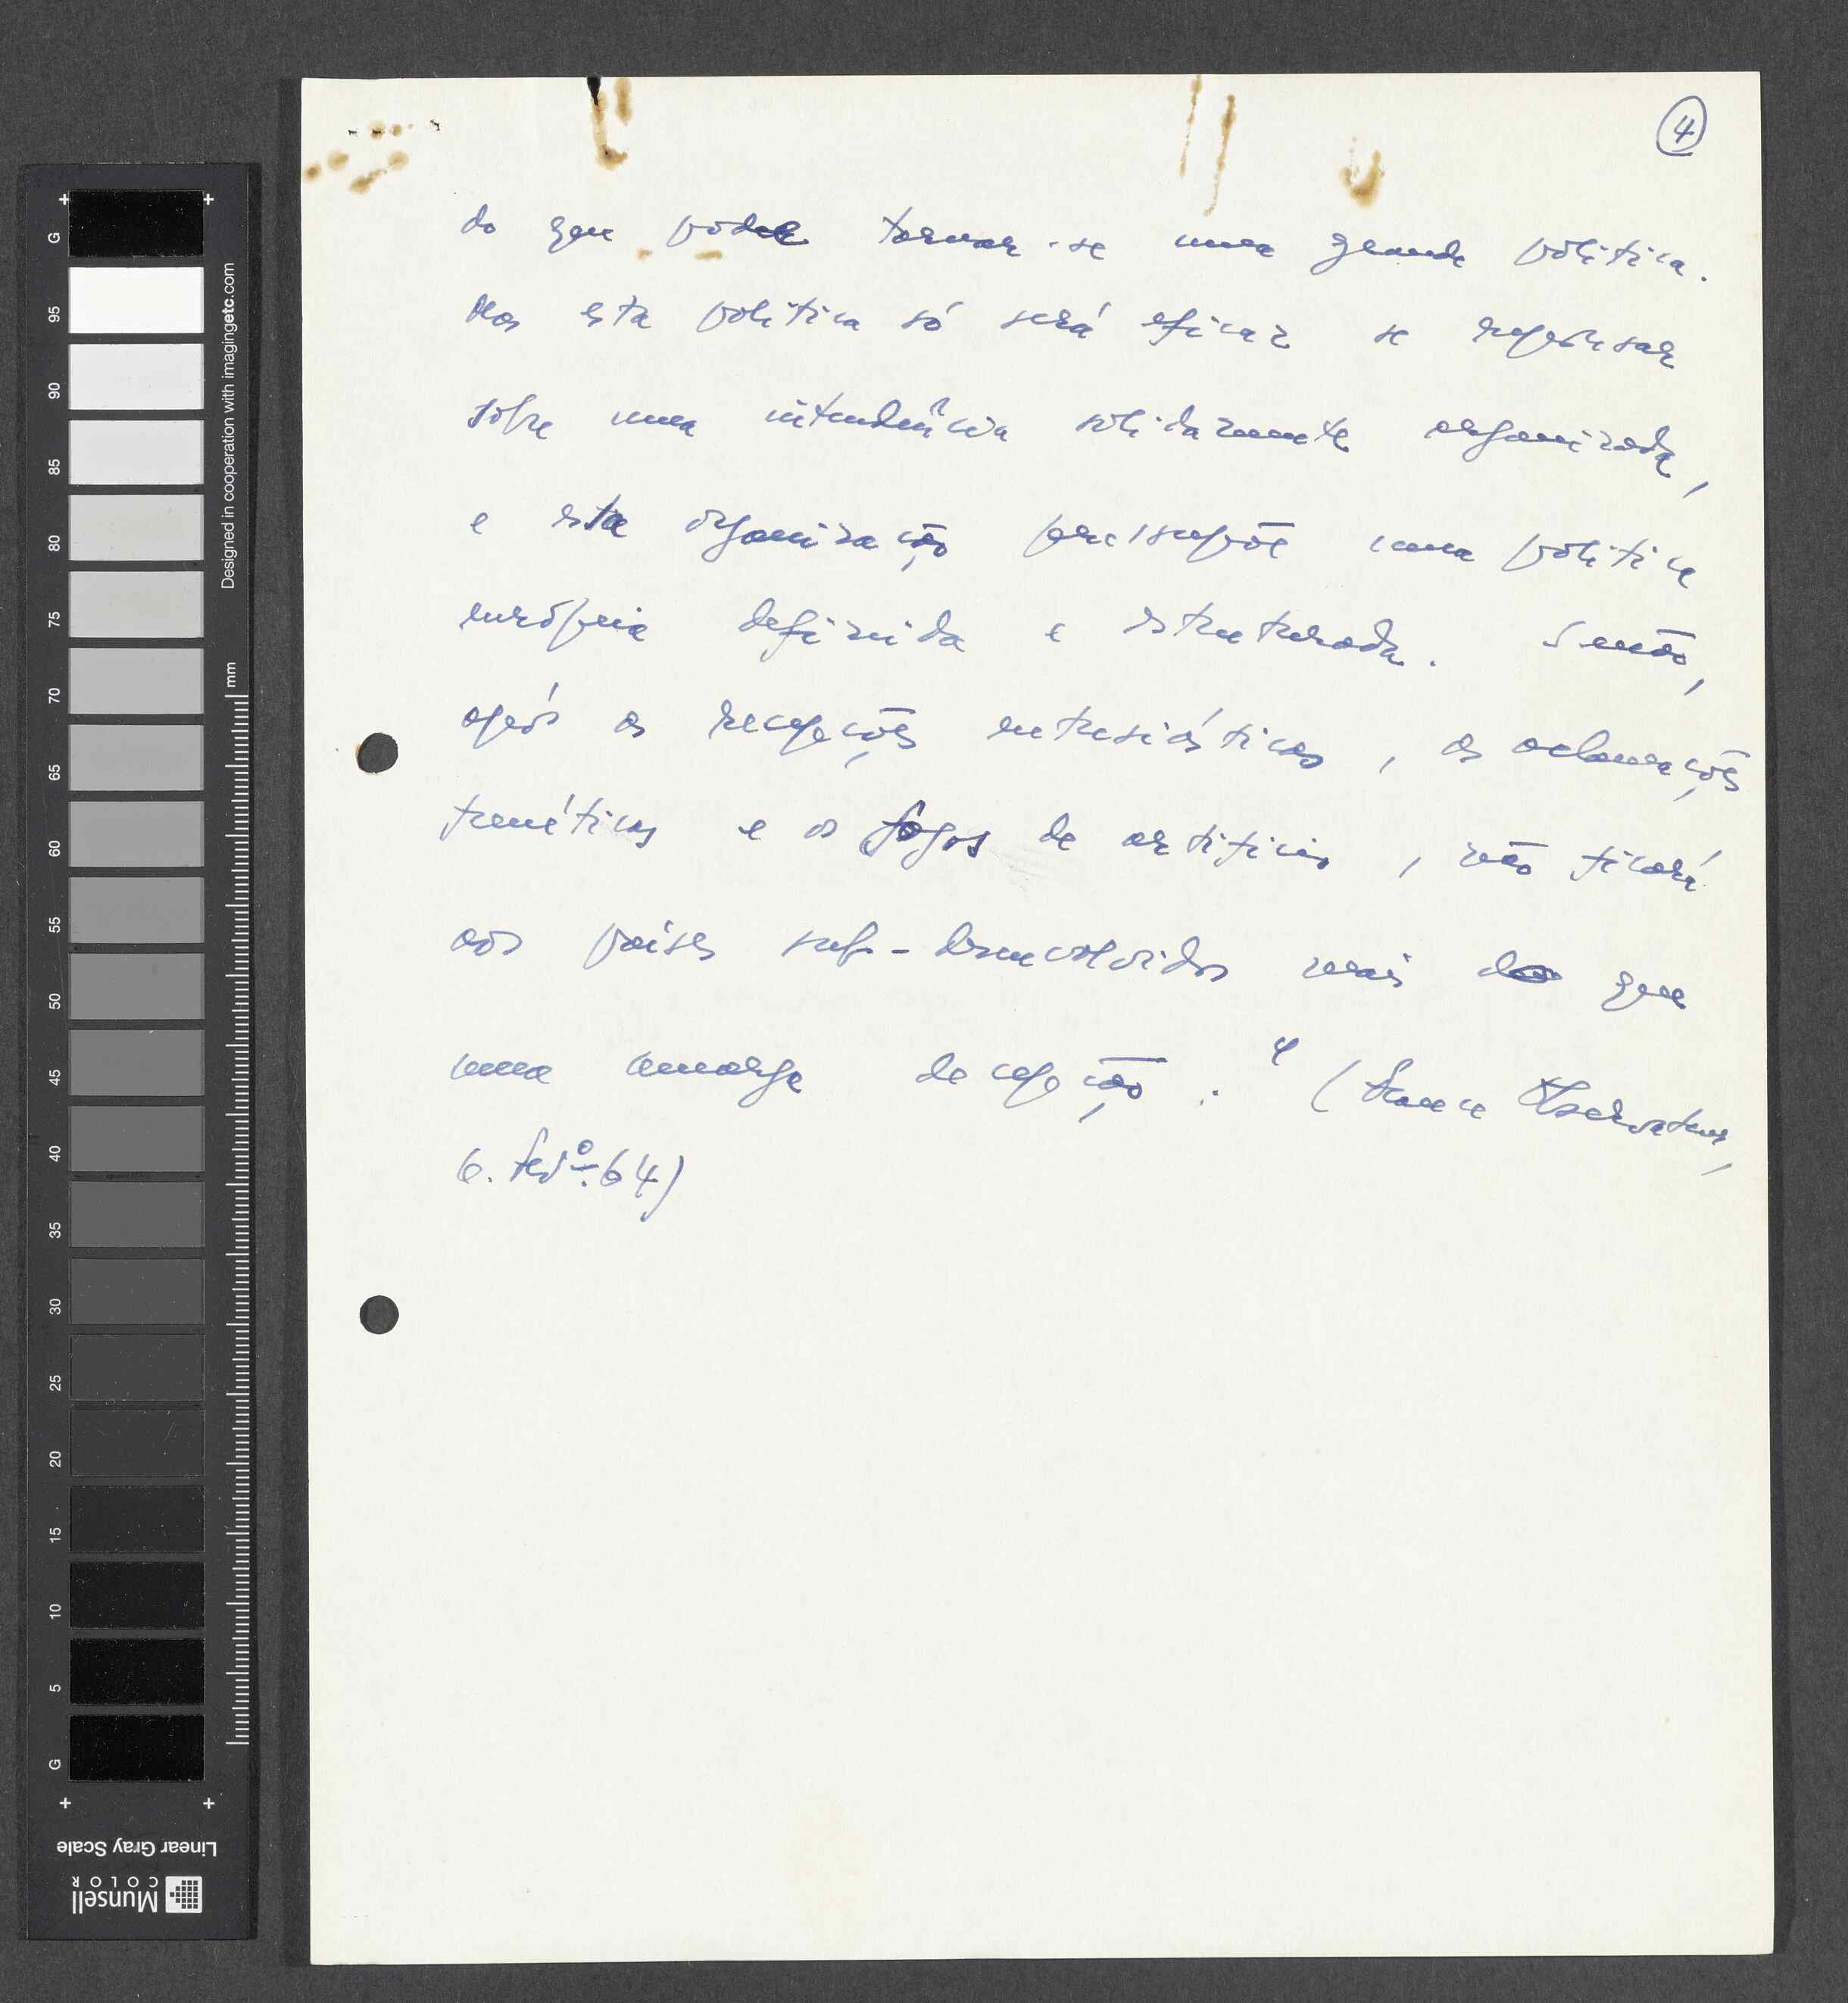 4
do que poder tornar-se uma grande política.
Mas esta política só será eficaz se repousar
sôbre uma intendência sòlidamente organizada,
e esta organização pressupõe uma política
européia definida e estruturada. Senão,
após as recepções entusiásticas, as aclamações
frenéticas e os fogos de artifício, não ficará
aos países sub-desenvolvidos mais do que
uma amarga decepção." (France Observateur,
6. fevº. 64)
G 95 90 85 80 75 70 65 60 55 50 45 40 35 30 25 20 15 10 5 G
Designed in cooperation with imagingetc.com
mm
Linear Gray Scale
Munsell
COLOR